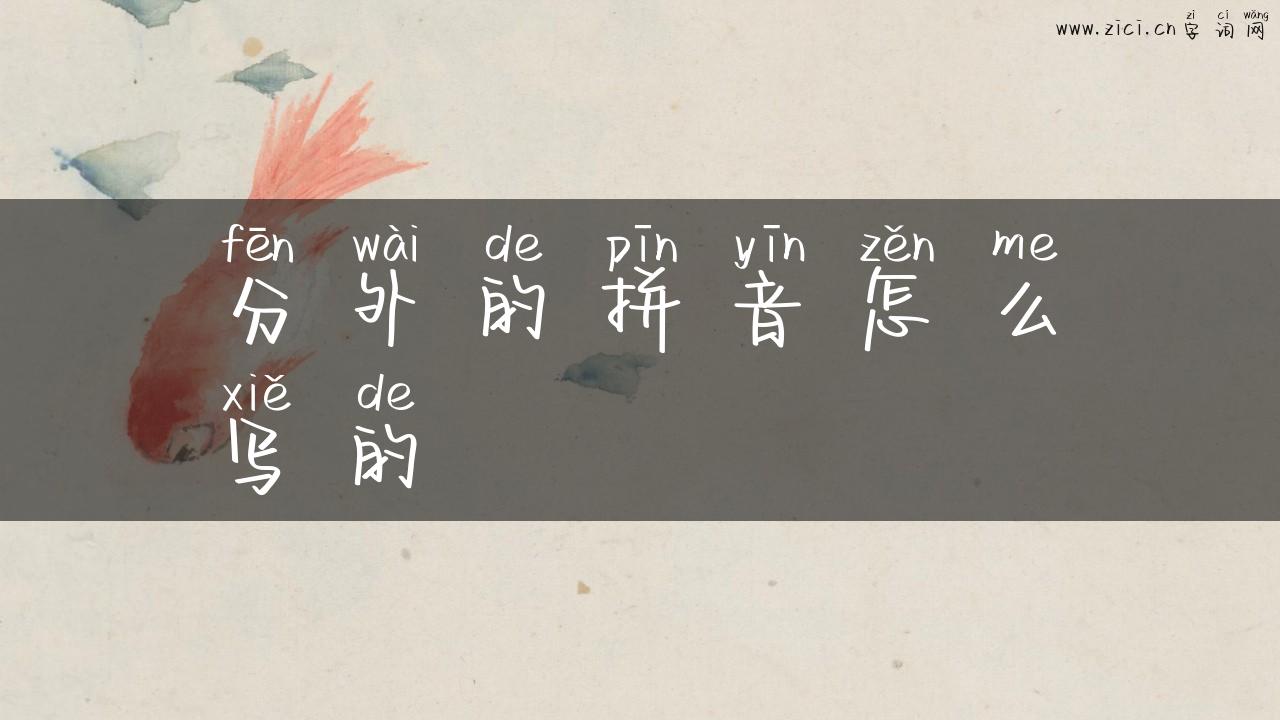 zì cí wǎng
www.zici.cn 字词网
fēn wài de pīn yīn zěn me
分外的拼音怎么
xiě de
写的